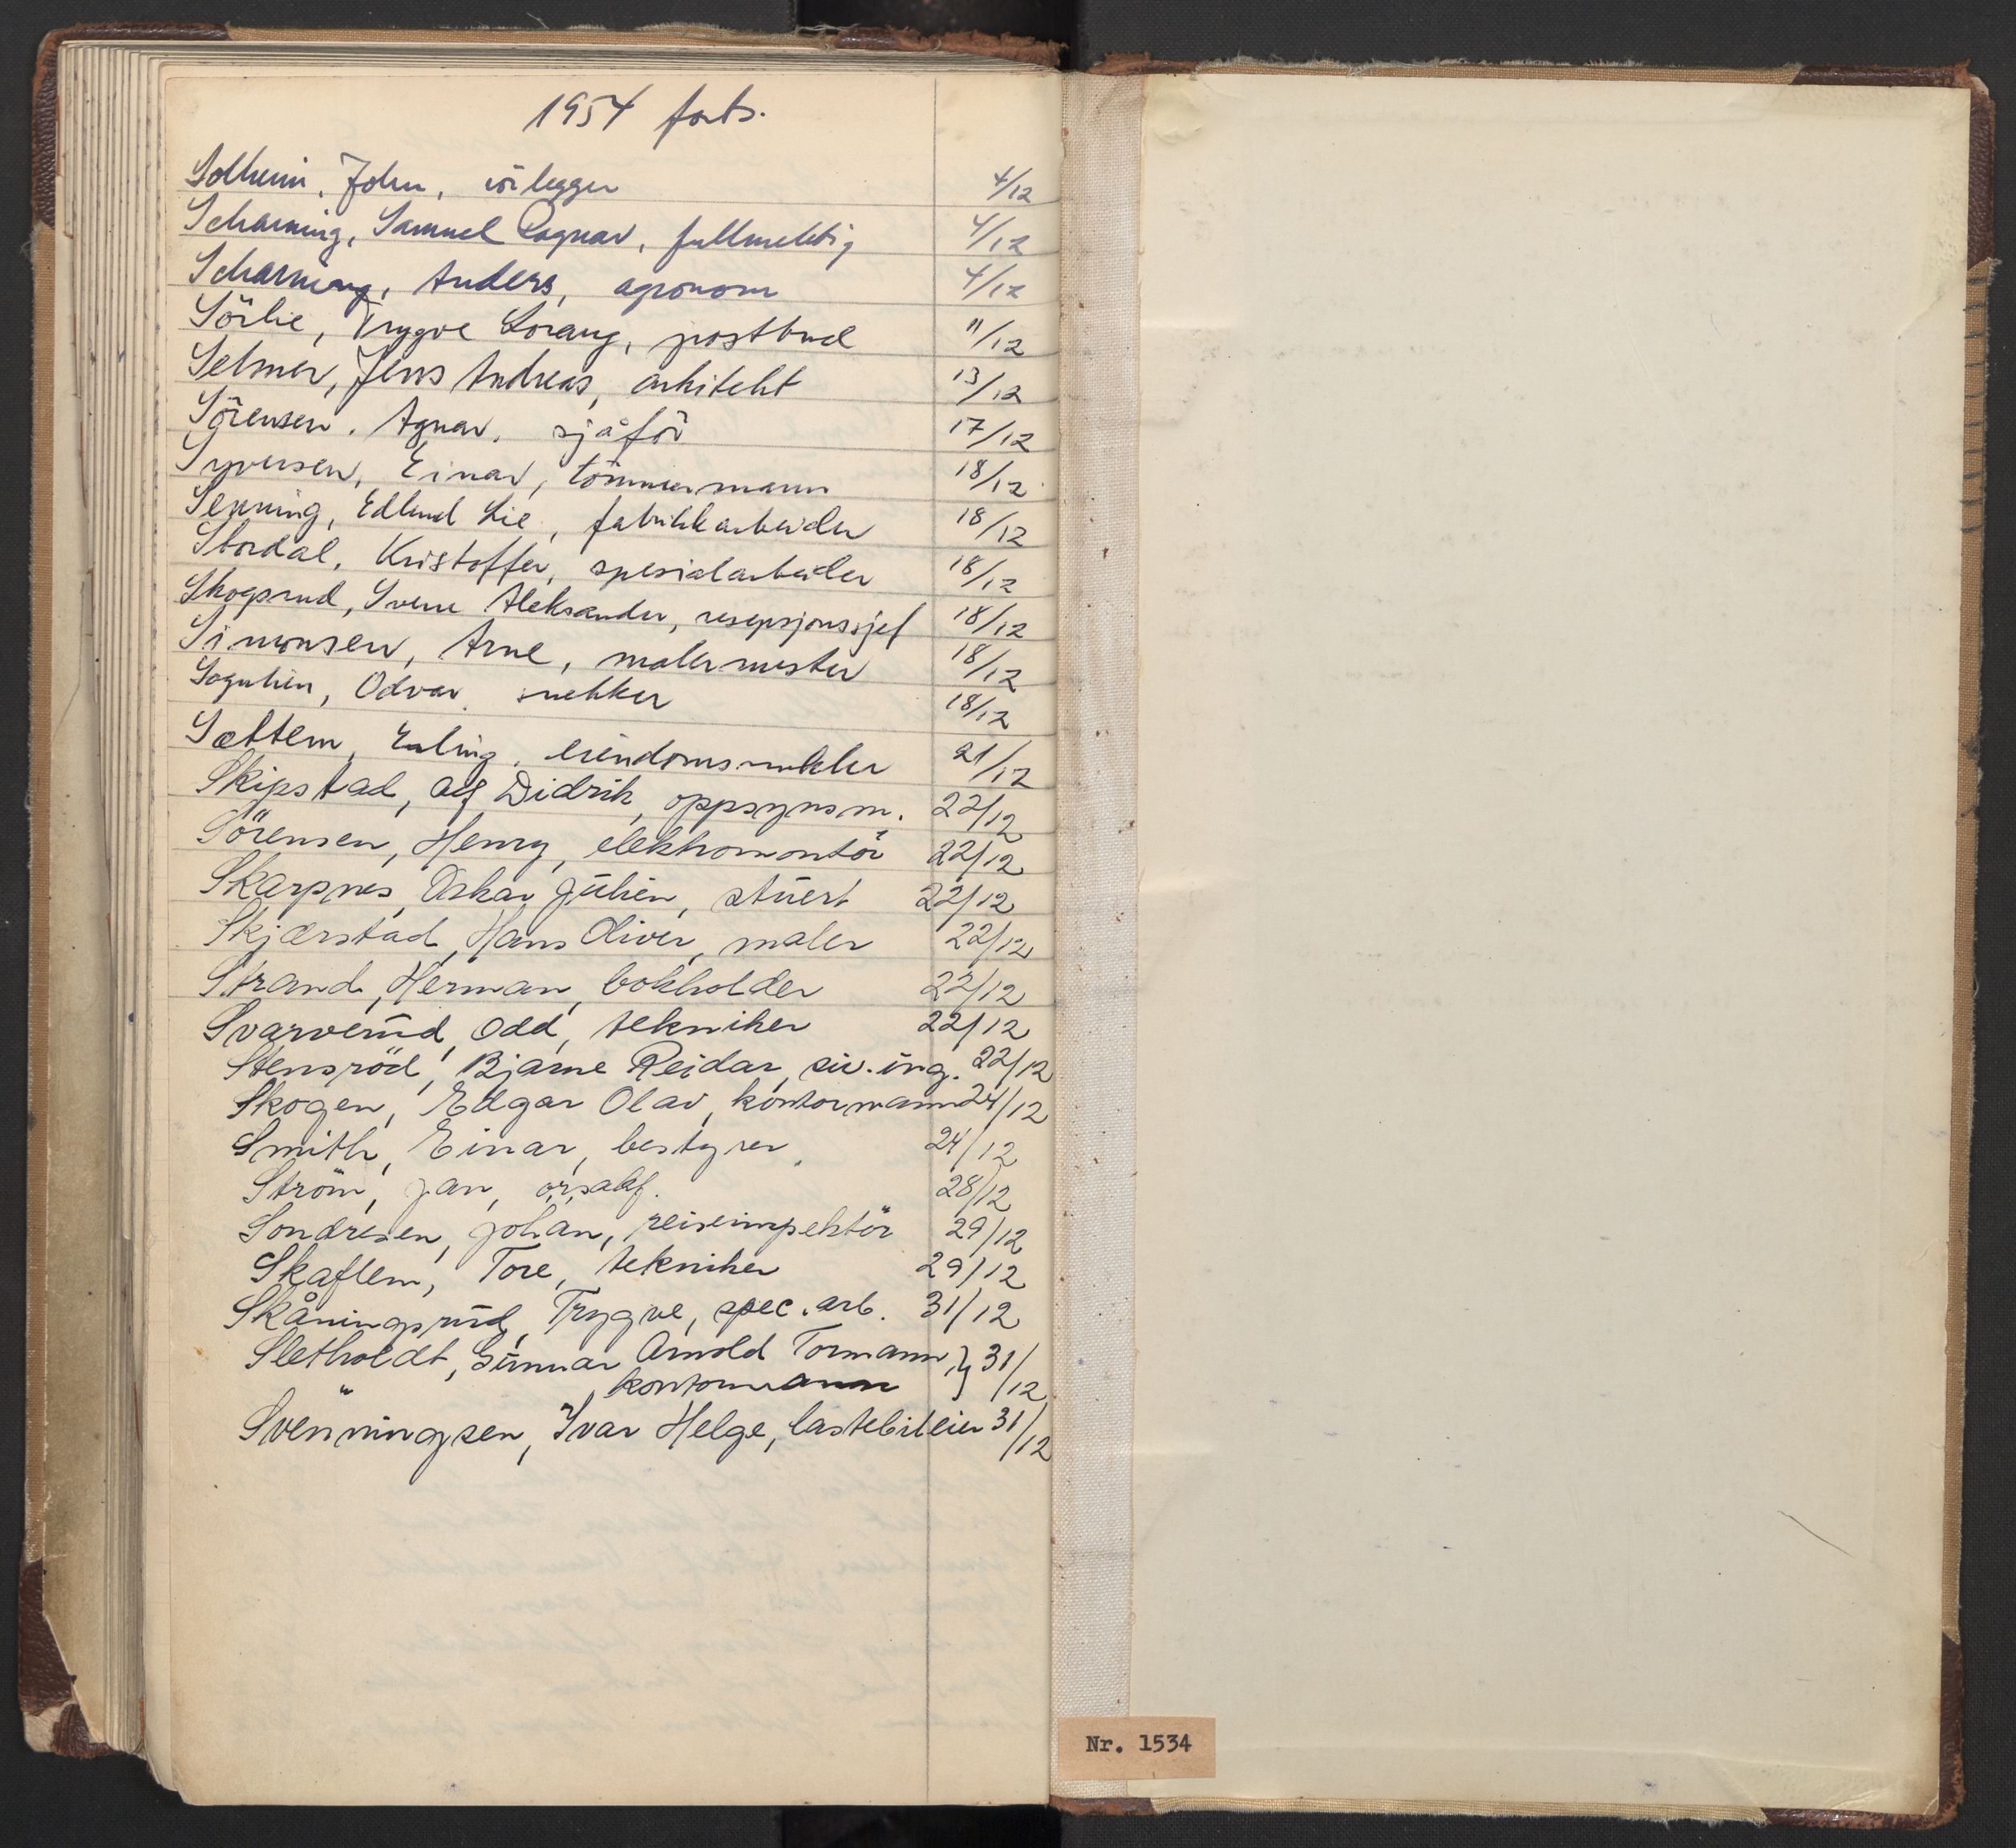 1954 forts.
Solheim, John, rörlegger 4/12
Scharning, Samuel Ragnar, fullmektig 4/12
Scharning, Anders, agronom 4/12
Sörlie, Trygve Lorang, postbud 11/12
Selmer, Jens Andreas, arkitekt 13/12
Sörensen, Agnar, sjåför 17/12
Syversen, Einar, tömmermann 18/12
Senning, Edlund Lie, fabrikkarbeider 18/12
Stordal, Kristoffer, spesialarbeider 18/12
Skogsrud, Sverre Aleksander, resepsjonssjef 18/12
Simonsen, Arne, malermester 18/12
Sognlien, Odvar, snekker 18/12
Sættem, Erling, eiendomsmekler 21/12
Skipstad, Alf Didrik, oppsynsm. 22/12
Sörensen, Henry, elektromontör 22/12
Skarpnes, Oskar Julien, stuert 22/12
Skjærstad, Hans Oliver, maler 22/12
Strand, Herman, bokholder 22/12
Svarverud, Odd, tekniker 22/12
Stensröd, Bjarne Reidar, siv.ing. 22/12
Skogen, Edgar Olav, kontormann 24/12
Smith, Einar, bestyrer 24/12
Ström, Jan, o.r.sakf. 28/12
Sondresen, Johan, reiseinspektör 29/12
Skaflem, Tore, tekniker 29/12
Skåningsrud, Trygve, spec.arb. 31/12
Sletholdt, Gunnar Arnold Tormann, } 31/12
kontormann
Svenningsen, Ivar Helge, lastebileier 31/12
Nr. 1534